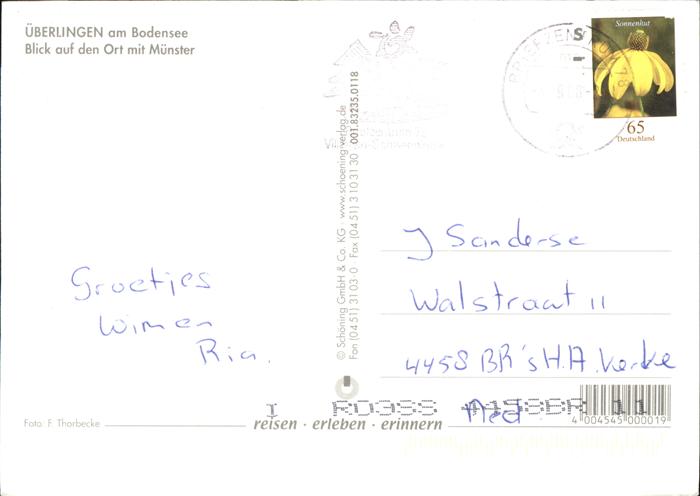 ÜBERLINGEN am Bodensee
Blick auf den Ort mit Münster
Sonnenhut
65
Deutschland
BRIEFZENTRUM
© Schöning GmbH & Co. KG · www.schoening-verlag.de
Fon (04 51) 31 03-0 · Fax (04 51) 3 10 31 30 · 001.83235.0118
Groetjes
Wimen
Ria.
J Sanderse
Walstraat 11
4458 BR 's H.A. Kerke
Ned
4 004545 000019
Foto: F. Thorbecke
reisen · erleben · erinnern